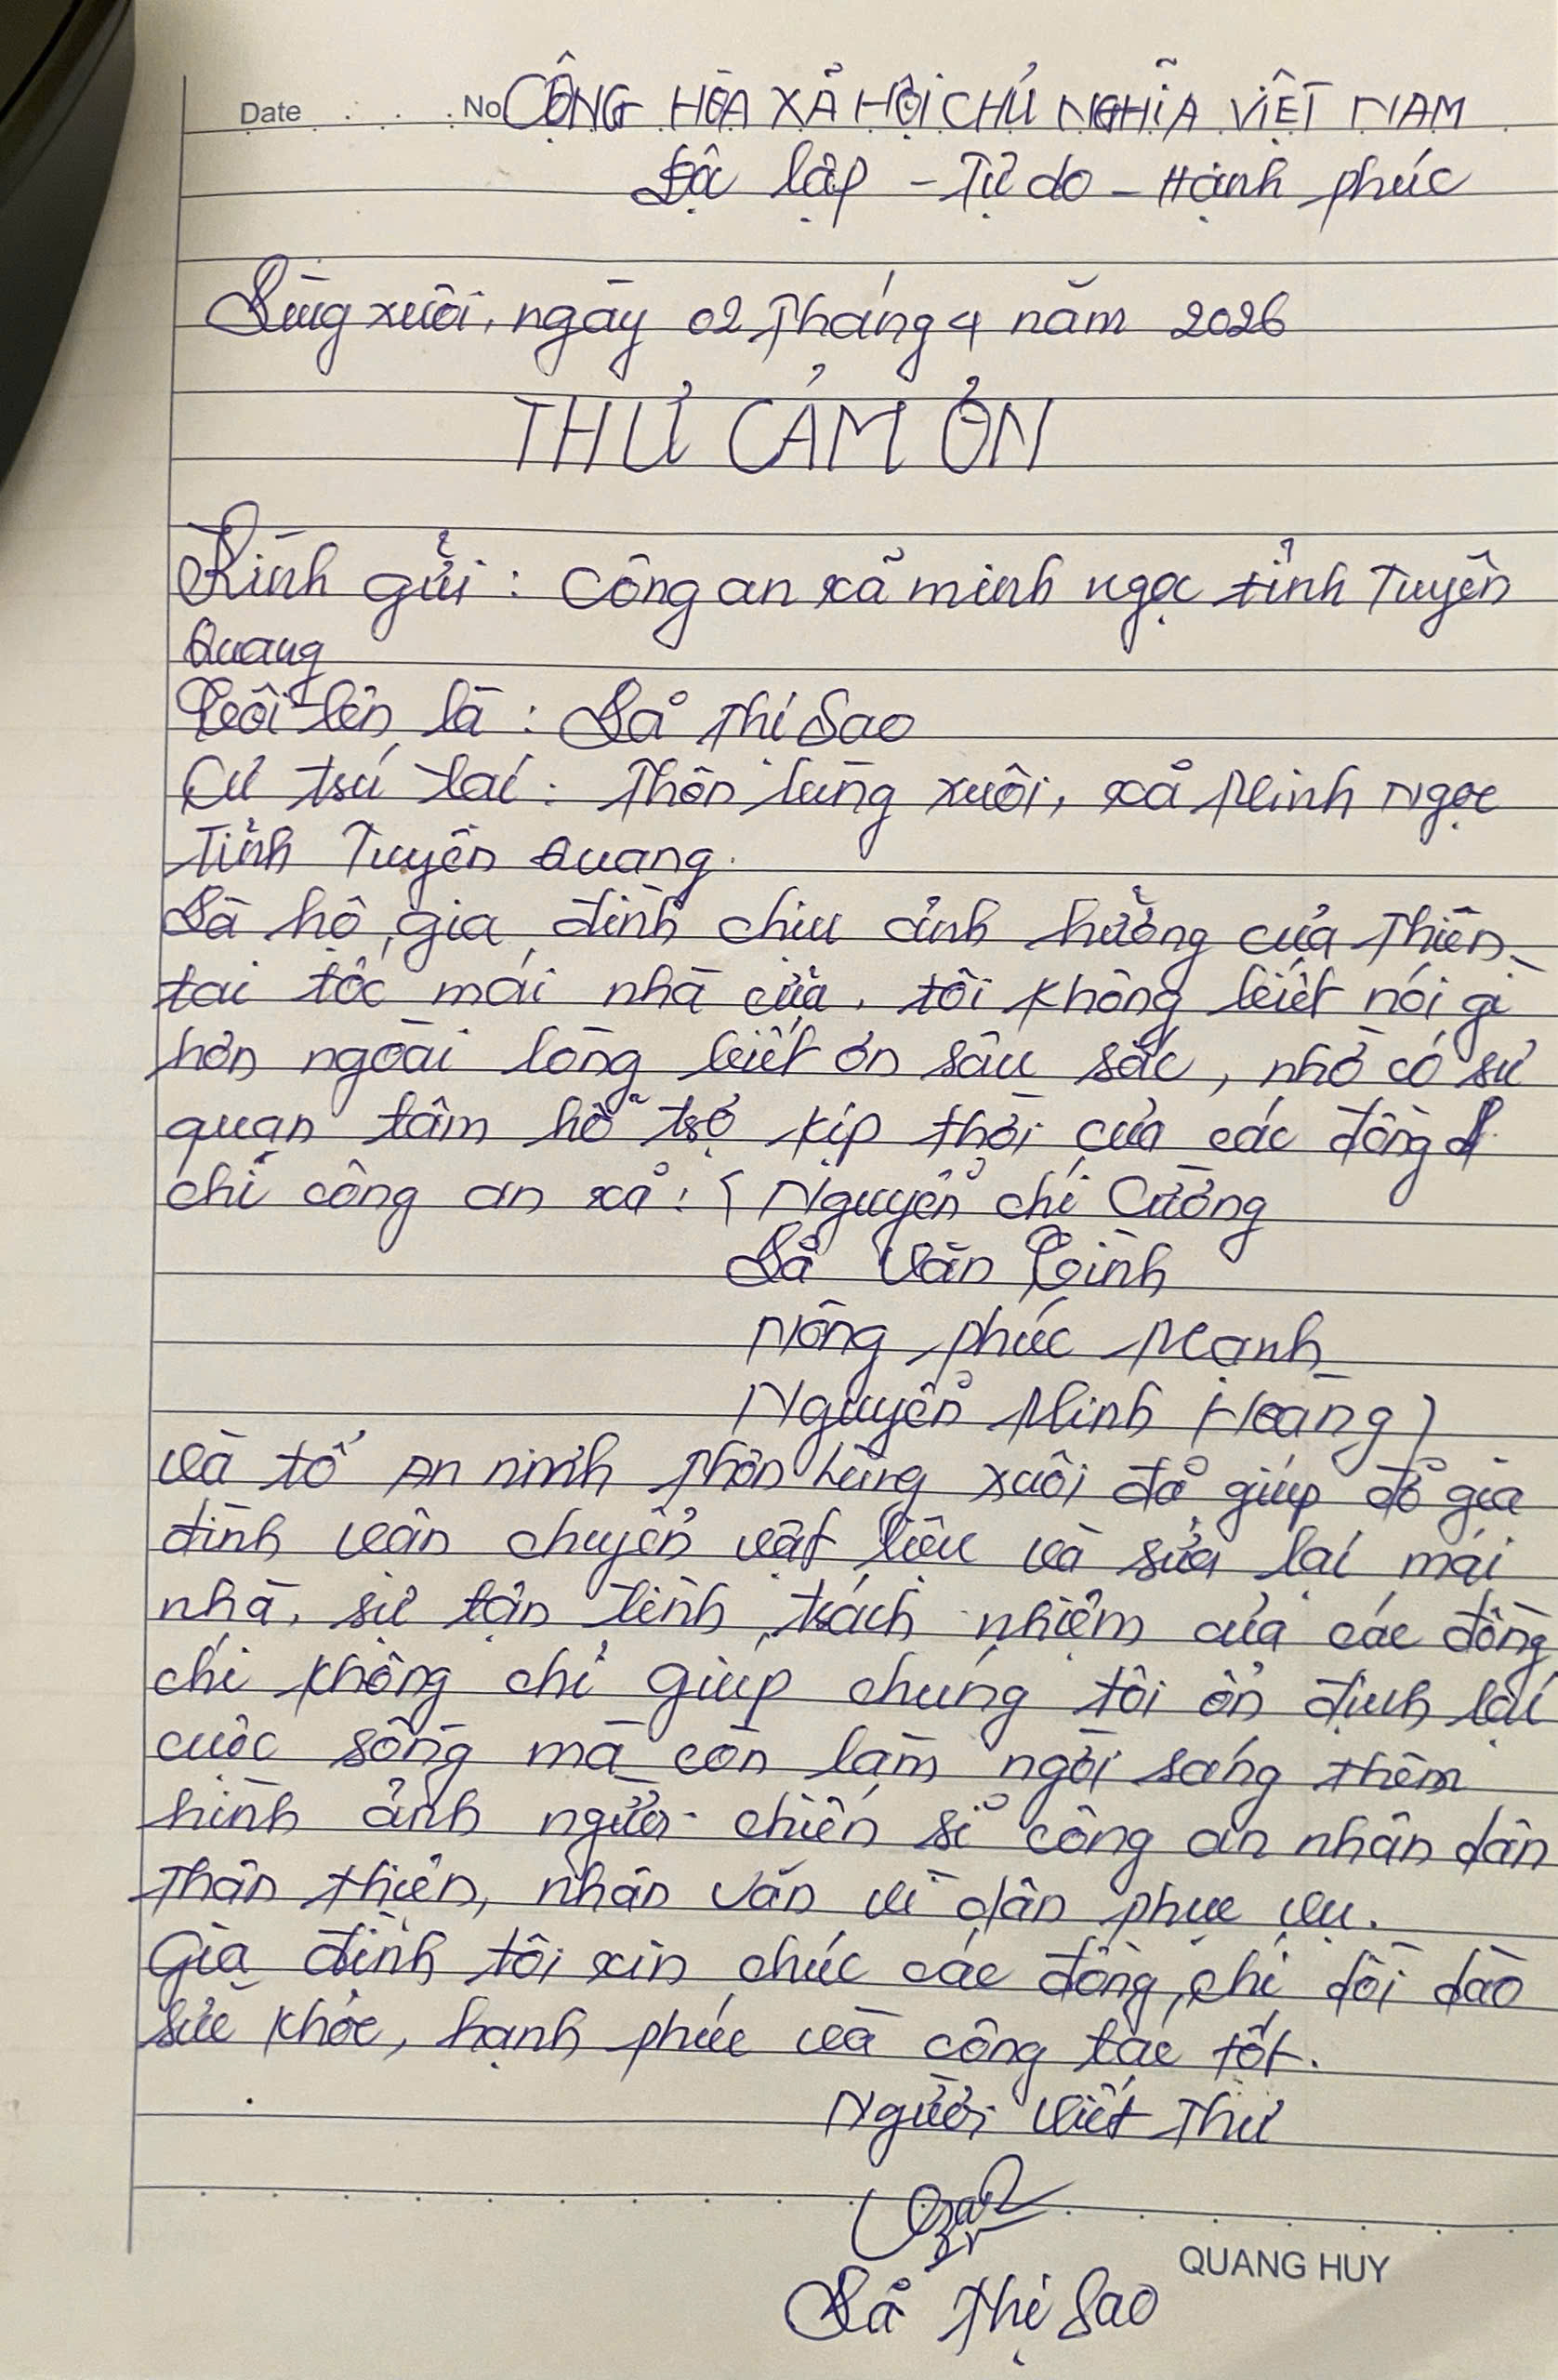 Date . . . . No CỘNG HÒA XÃ HỘI CHỦ NGHĨA VIỆT NAM
Độc lập - Tự do - Hạnh phúc
Lùng xuôi, ngày 02 Tháng 4 năm 2026
THƯ CẢM ƠN
Kính gửi : Công an xã minh ngọc tỉnh Tuyên
Quang
Tôi tên là : Lả Thị Sao
Cư trú tại : Thôn lùng xuôi, xã Minh Ngọc
Tỉnh Tuyên Quang.
Là hộ gia đình chịu ảnh hưởng của Thiên
tai tốc mái nhà cửa, tôi không biết nói gì
hơn ngoài lòng biết ơn sâu sắc, nhờ có sự
quan tâm hỗ trợ kịp thời của các đồng
chí công an xã : ( Nguyễn chí Cường
Lả Văn Tình
Nông phúc Mạnh
Nguyễn Minh Hoàng )
và tổ An ninh thôn Lùng xuôi đã giúp đỡ gia
đình vận chuyển vật liệu và sửa lại mái
nhà, sự tận tình trách nhiệm của các đồng
chí không chỉ giúp chúng tôi ổn định lại
cuộc sống mà còn làm ngời sáng thêm
hình ảnh người chiến sĩ công an nhân dân
Thân thiện, nhân văn vì dân phục vụ.
Gia đình tôi xin chúc các đồng chí dồi dào
sức khỏe, hạnh phúc và công tác tốt.
Người viết Thư
Lả Thị Sao
QUANG HUY